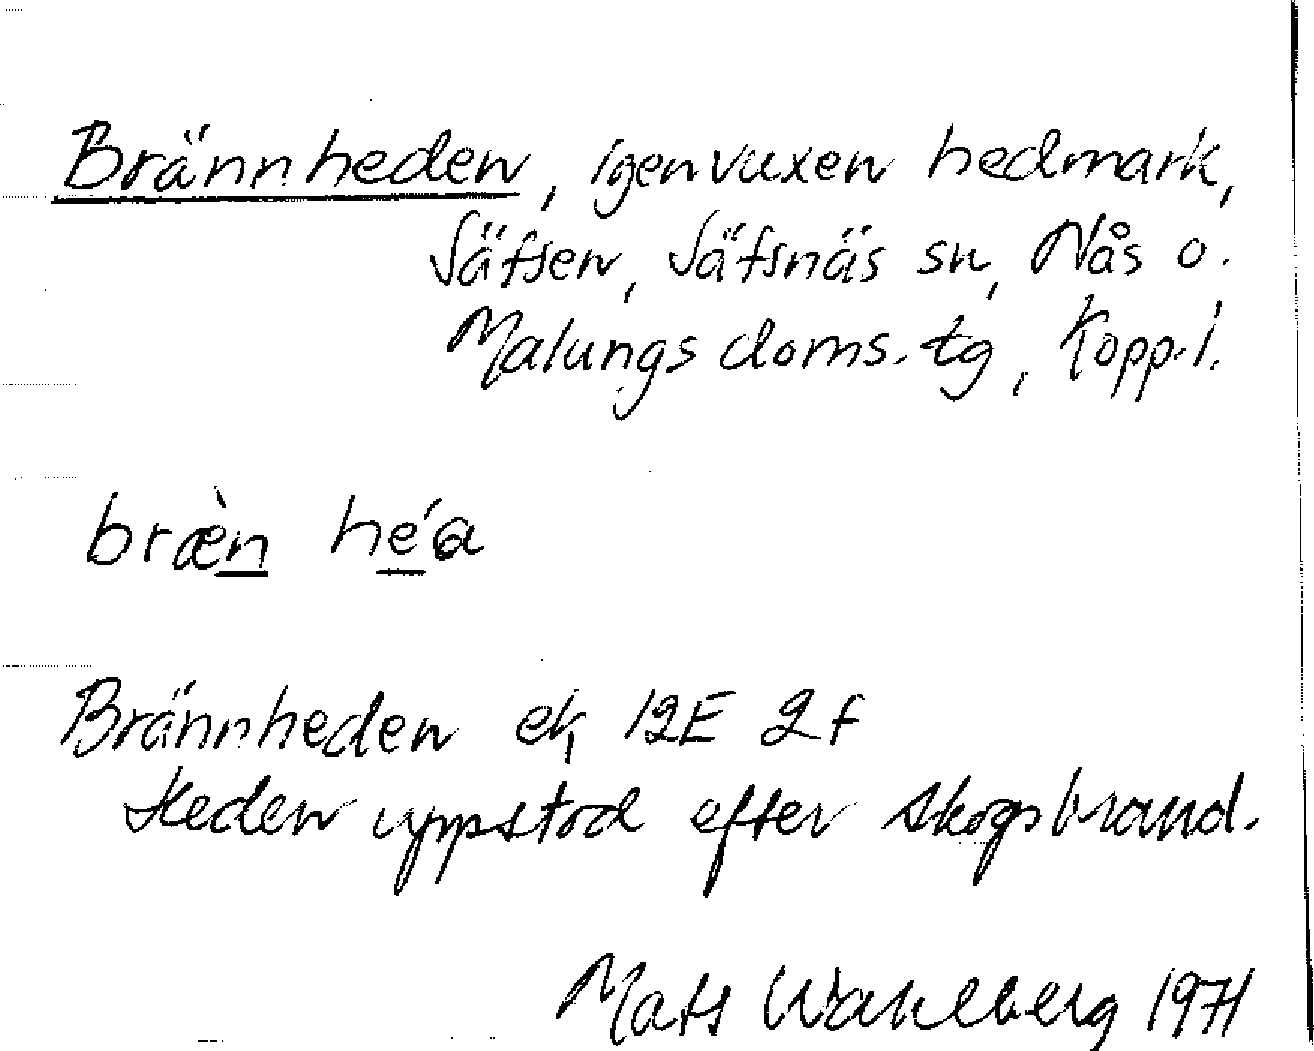 Brännheden, igenvuxen hedmark,
Säfsen, Säfsnäs sn, Nås o.
Malungs doms. tg, Kopp.l.
bræ̀n hé'a
Brännheden ek, 12E 2f
Heden uppstod efter skogsbrand.
Mats Wahlberg 1971